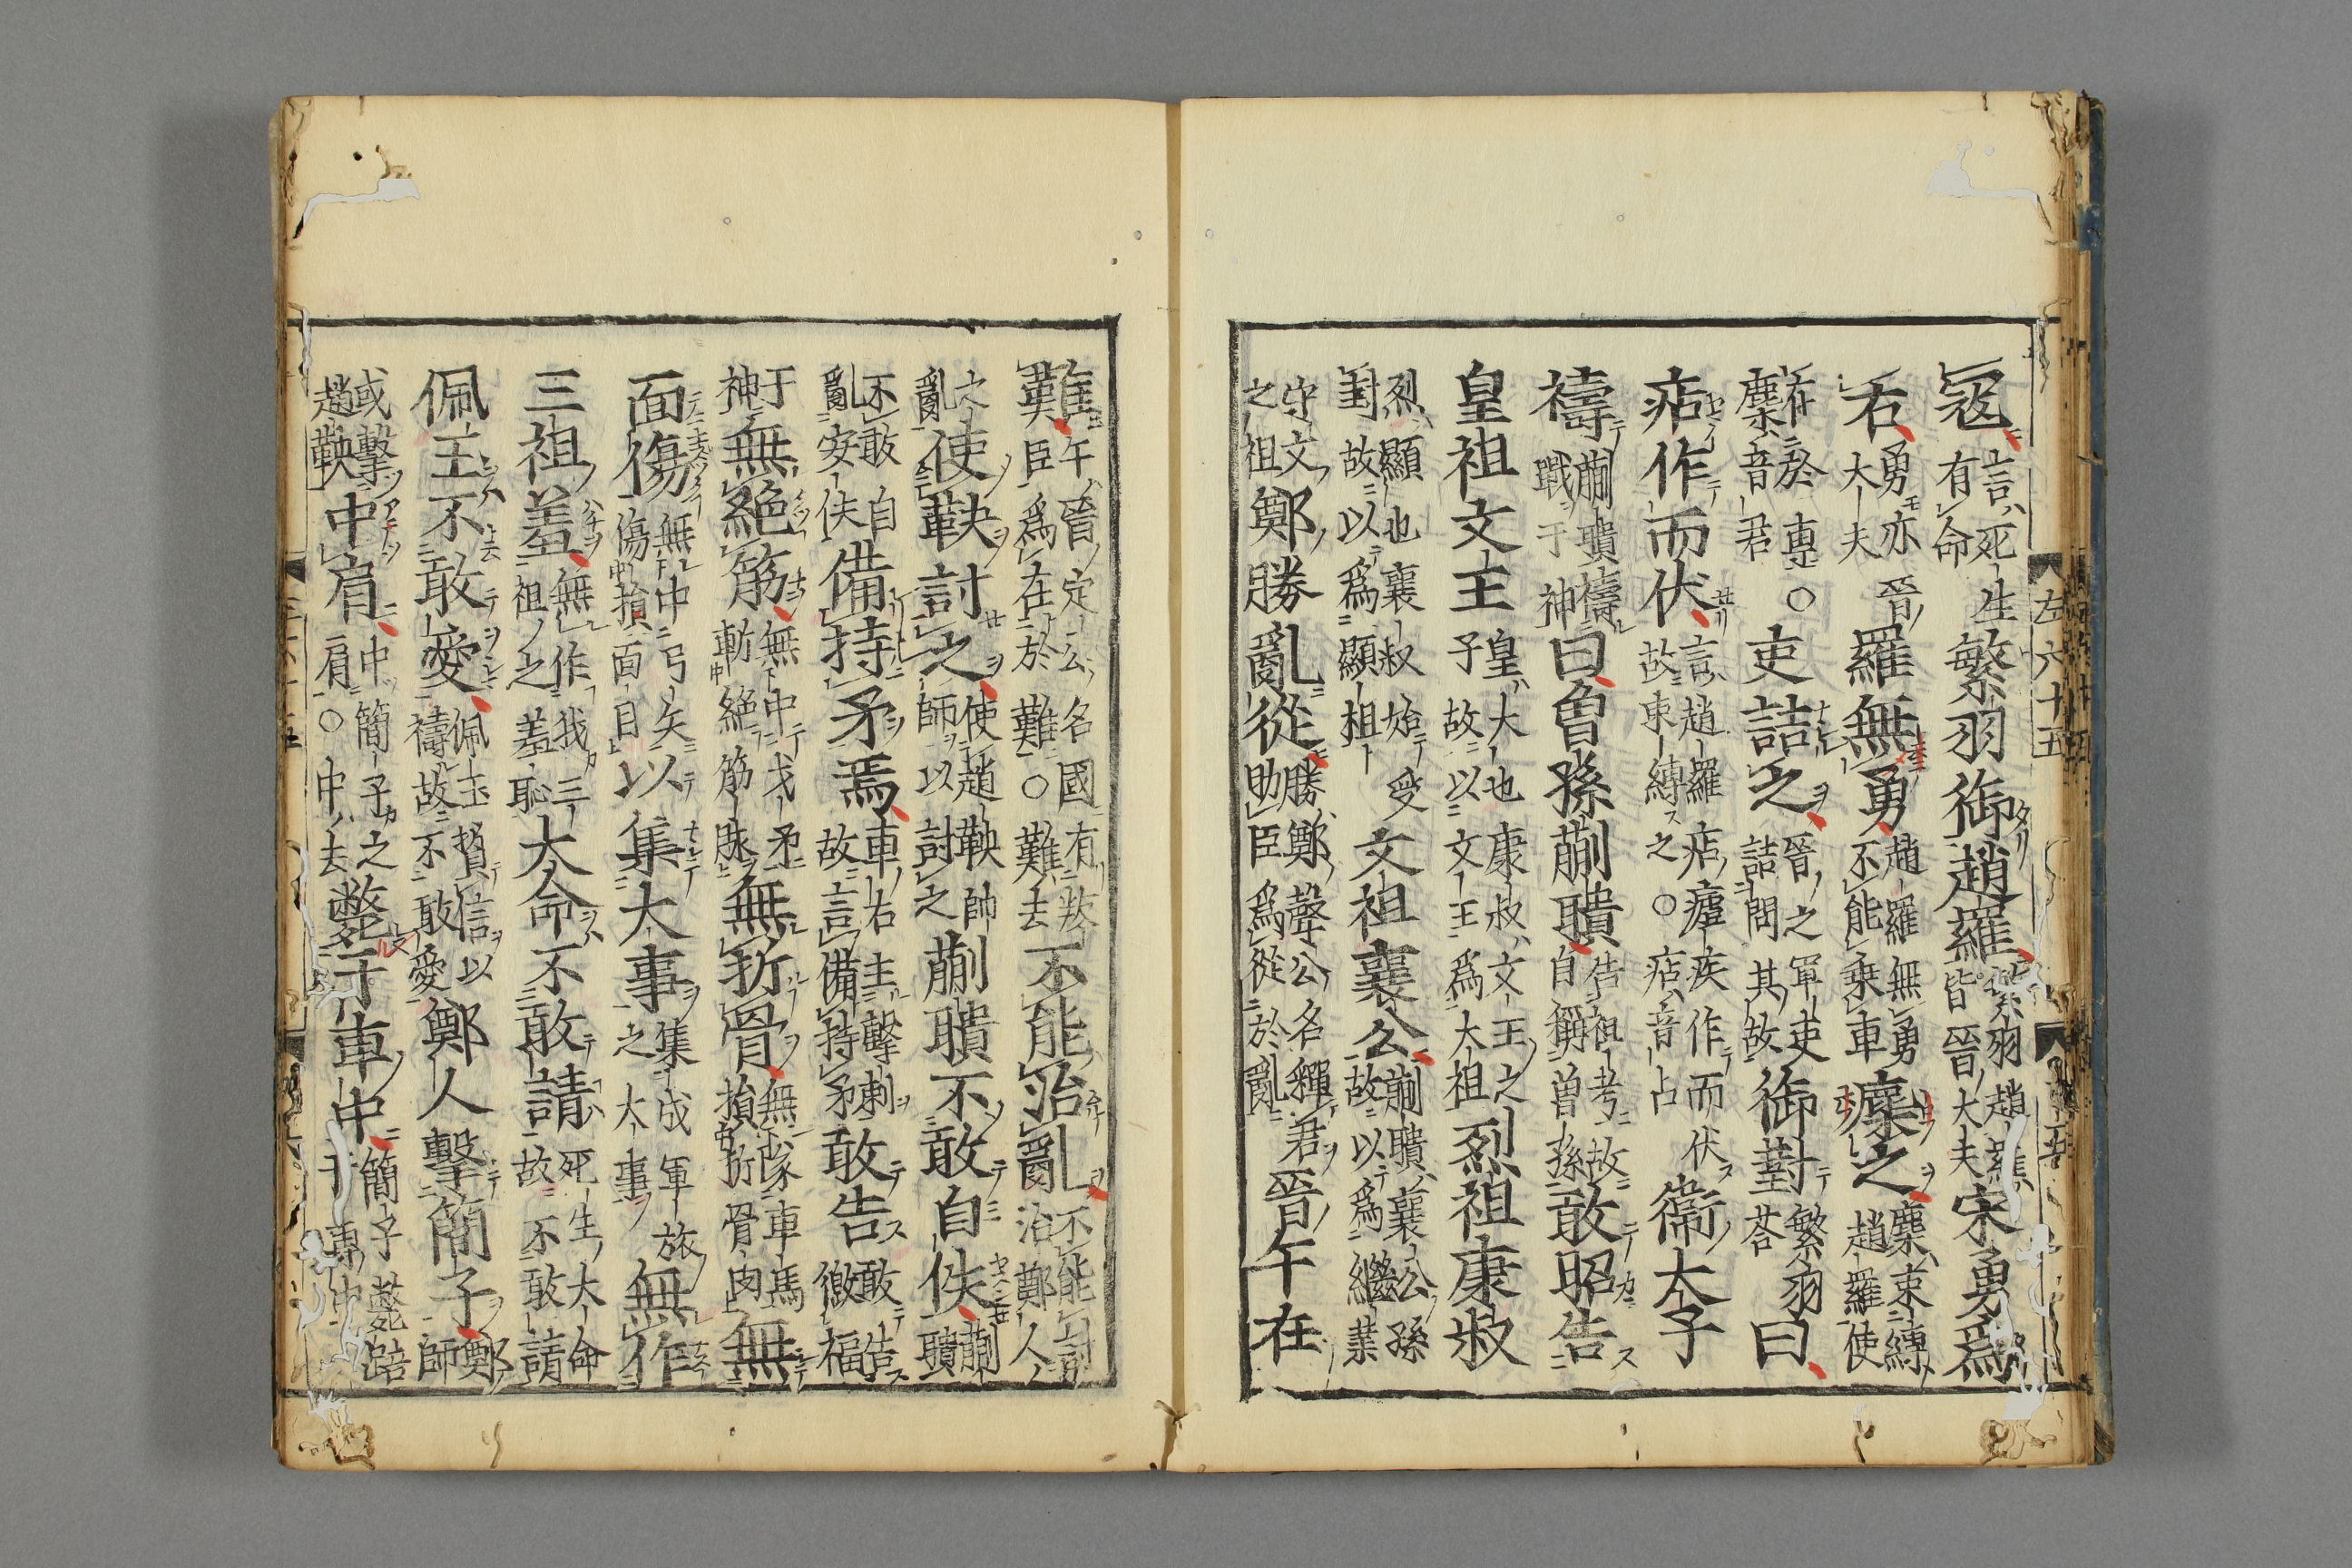 寇言死生有命繁羽御趙羅繁羽趙羅皆晉大夫宋勇爲
右勇亦晉大夫羅無勇麇之趙羅無勇不能乘車麇束縛趙羅使
在於車○麇音君吏詰之晉之軍吏詰問其故御對荅繁羽曰
痁作而伏言趙羅痁瘧疾作而伏故束縛之○痁音占衞太子
禱蒯聵禱戰于神曰曾孫蒯聵告祖考故自稱曾孫敢昭告
皇祖文王皇大也康叔文王之子故以文王爲大祖烈祖康叔
烈顯也襄叔始受封故以爲顯祖文祖襄公蒯聵襄公孫故以爲繼業
守文之祖鄭勝亂從勝鄭聲公名釋君助臣爲從於亂晉午在
難午晉定公名國有叛臣爲在於難○難去不能治亂不能討治鄭人
之亂使鞅討之使趙鞅帥師以討之蒯聵不敢自佚蒯聵
不敢自亂安佚備持矛焉車右主擊刺故言備持矛敢告敢告徼福
于神無絶筋無中戈矛斬絶筋脉無折骨無隊車馬損折骨肉無
面傷無中弓矢傷損面目以集大事集成軍旅之大事無作
三祖羞無作我三祖之羞恥大命不敢請死生大命故不敢請
佩玉不敢愛佩玉贄信以禱故不敢愛鄭人擊簡子鄭師
或擊趙鞅中肩中簡子之肩○中去斃于車中簡子斃踣于車中
左六十五